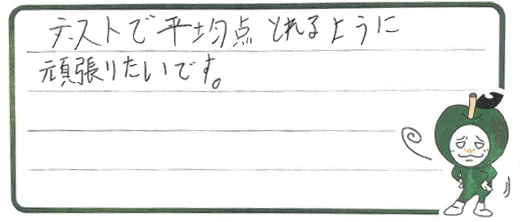 テストで平均点とれるように
頑張りたいです。